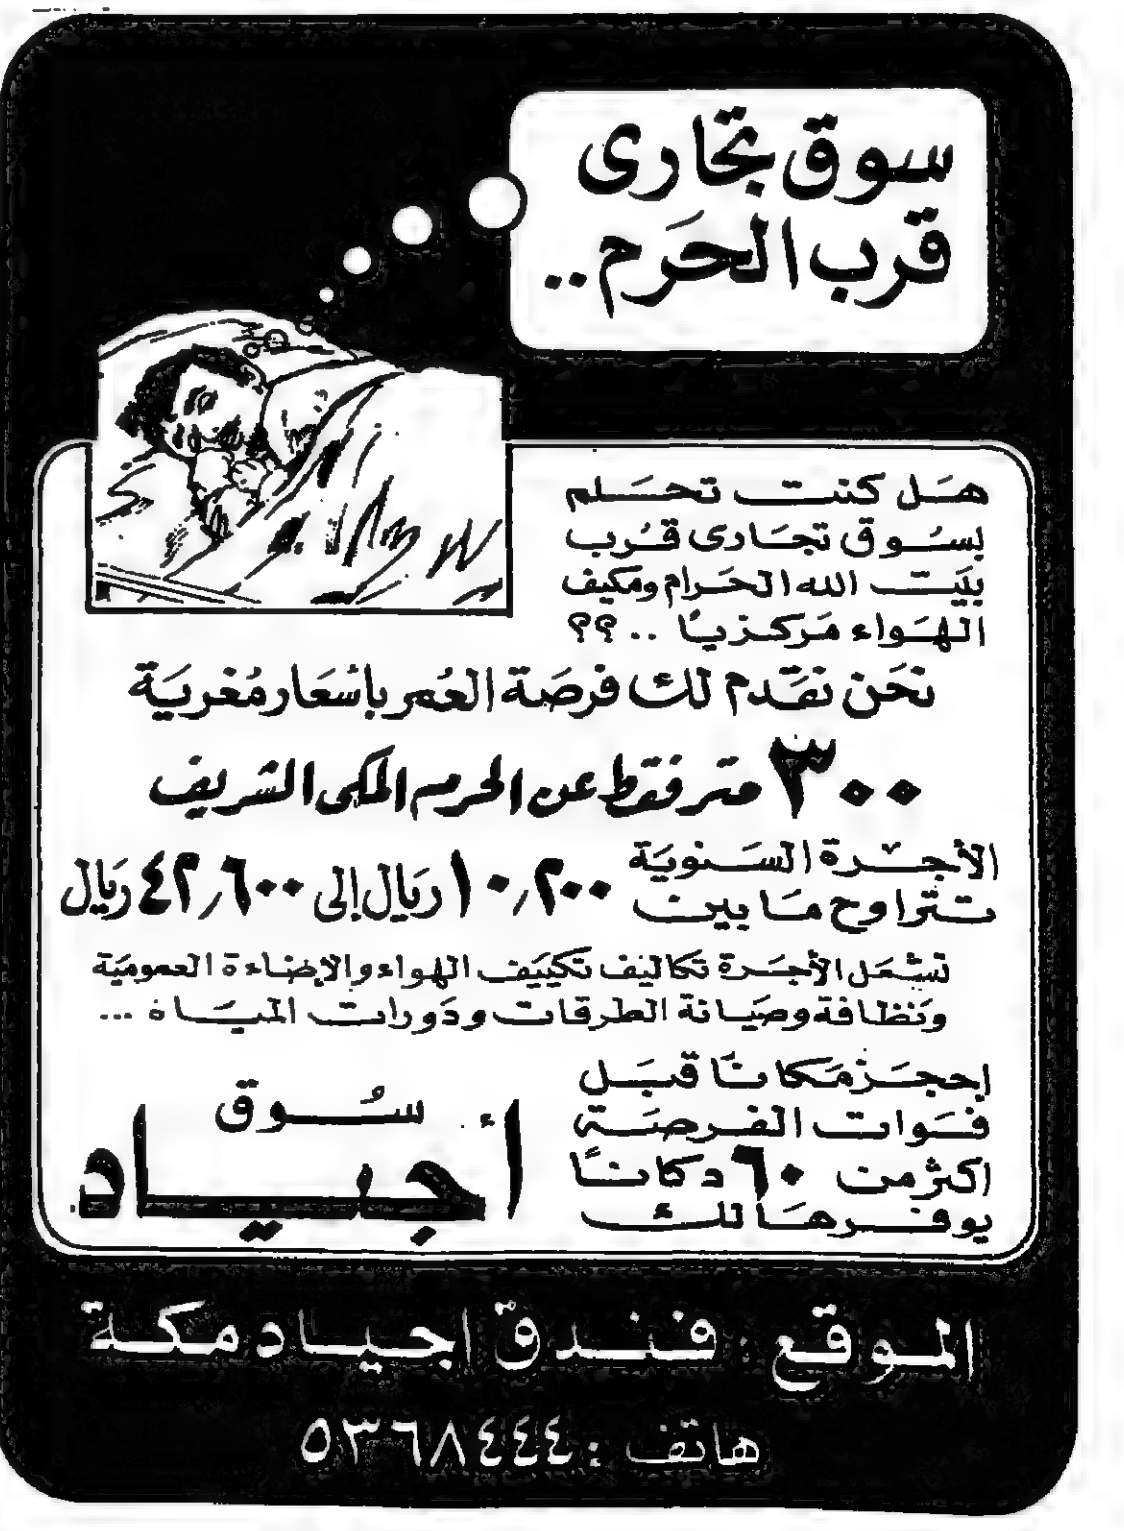 سوق تجارى
قرب الحرم..
هل كنت تحلم
بسوق تجارى قرب
بيت الله الحرام ومكيف
الهواء مركزيًا ..؟؟
نحن نقدم لك فرصة العمر بأسعار مغرية
٣٠٠ متر فقط عن الحرم المكى الشريف
الأجرة السنوية
تتراوح ما بين ١٠,٢٠٠ ريال إلى ٤٢,٦٠٠ ريال
تشمل الأجرة تكاليف تكييف الهواء والإضاءة العمومية
ونظافة وصيانة الطرقات ودورات المياه ...
إحجز مكانًا قبل
فوات الفرصة
اكثر من ٦٠ دكانًا
يوفرها لك
سوق
أجياد
الموقع : فندق اجياد مكة
هاتف : ٥٣٦٨٤٤٤